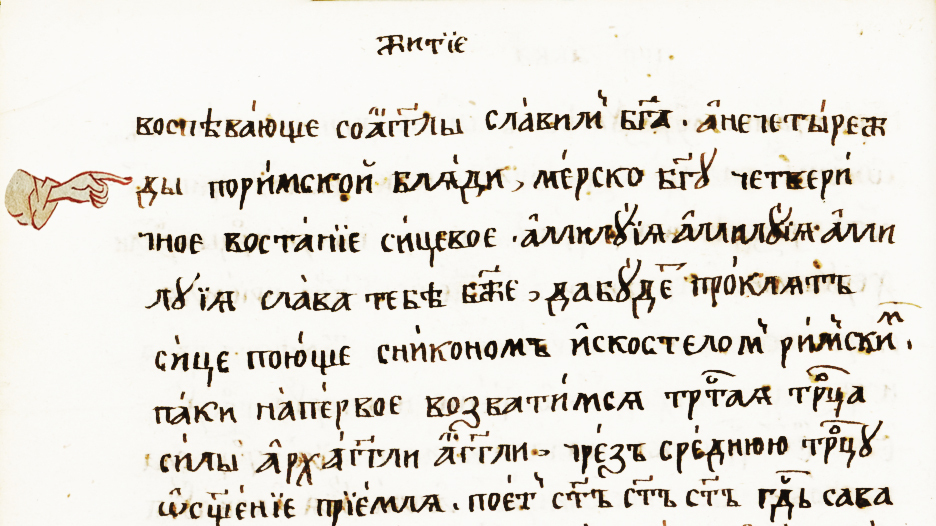 житїе
воспѣва́юще соа҆́гг҃лы сла́вили бг҃а. а҆нечеты́реж
ды пори́мской бля́ди, ме́рско бг҃ꙋ четвери́
чное воста́нїе си́цевое. а҆ллилꙋ́їѧ а҆ллилꙋ́їѧ а҆лли
лꙋ́їѧ сла́ва тебѣ бж҃е, дабꙋ́де про́клятъ
си́це пою́ще сни́кономъ и҆скостеломъ ри́мским.
па́ки напе́рвое возвати́мсѧ трⷪ҇таѧ трⷪ҇ца
си́лы а҆рха́гг҃ли а҆́гг҃ли. чре́зъ сре́днюю трⷪ҇цꙋ
ѡ҆сщ҃е́нїе прїе́млѧ. пое́тъ ст҃ъ ст҃ъ ст҃ъ гдⷭ҇ь сава